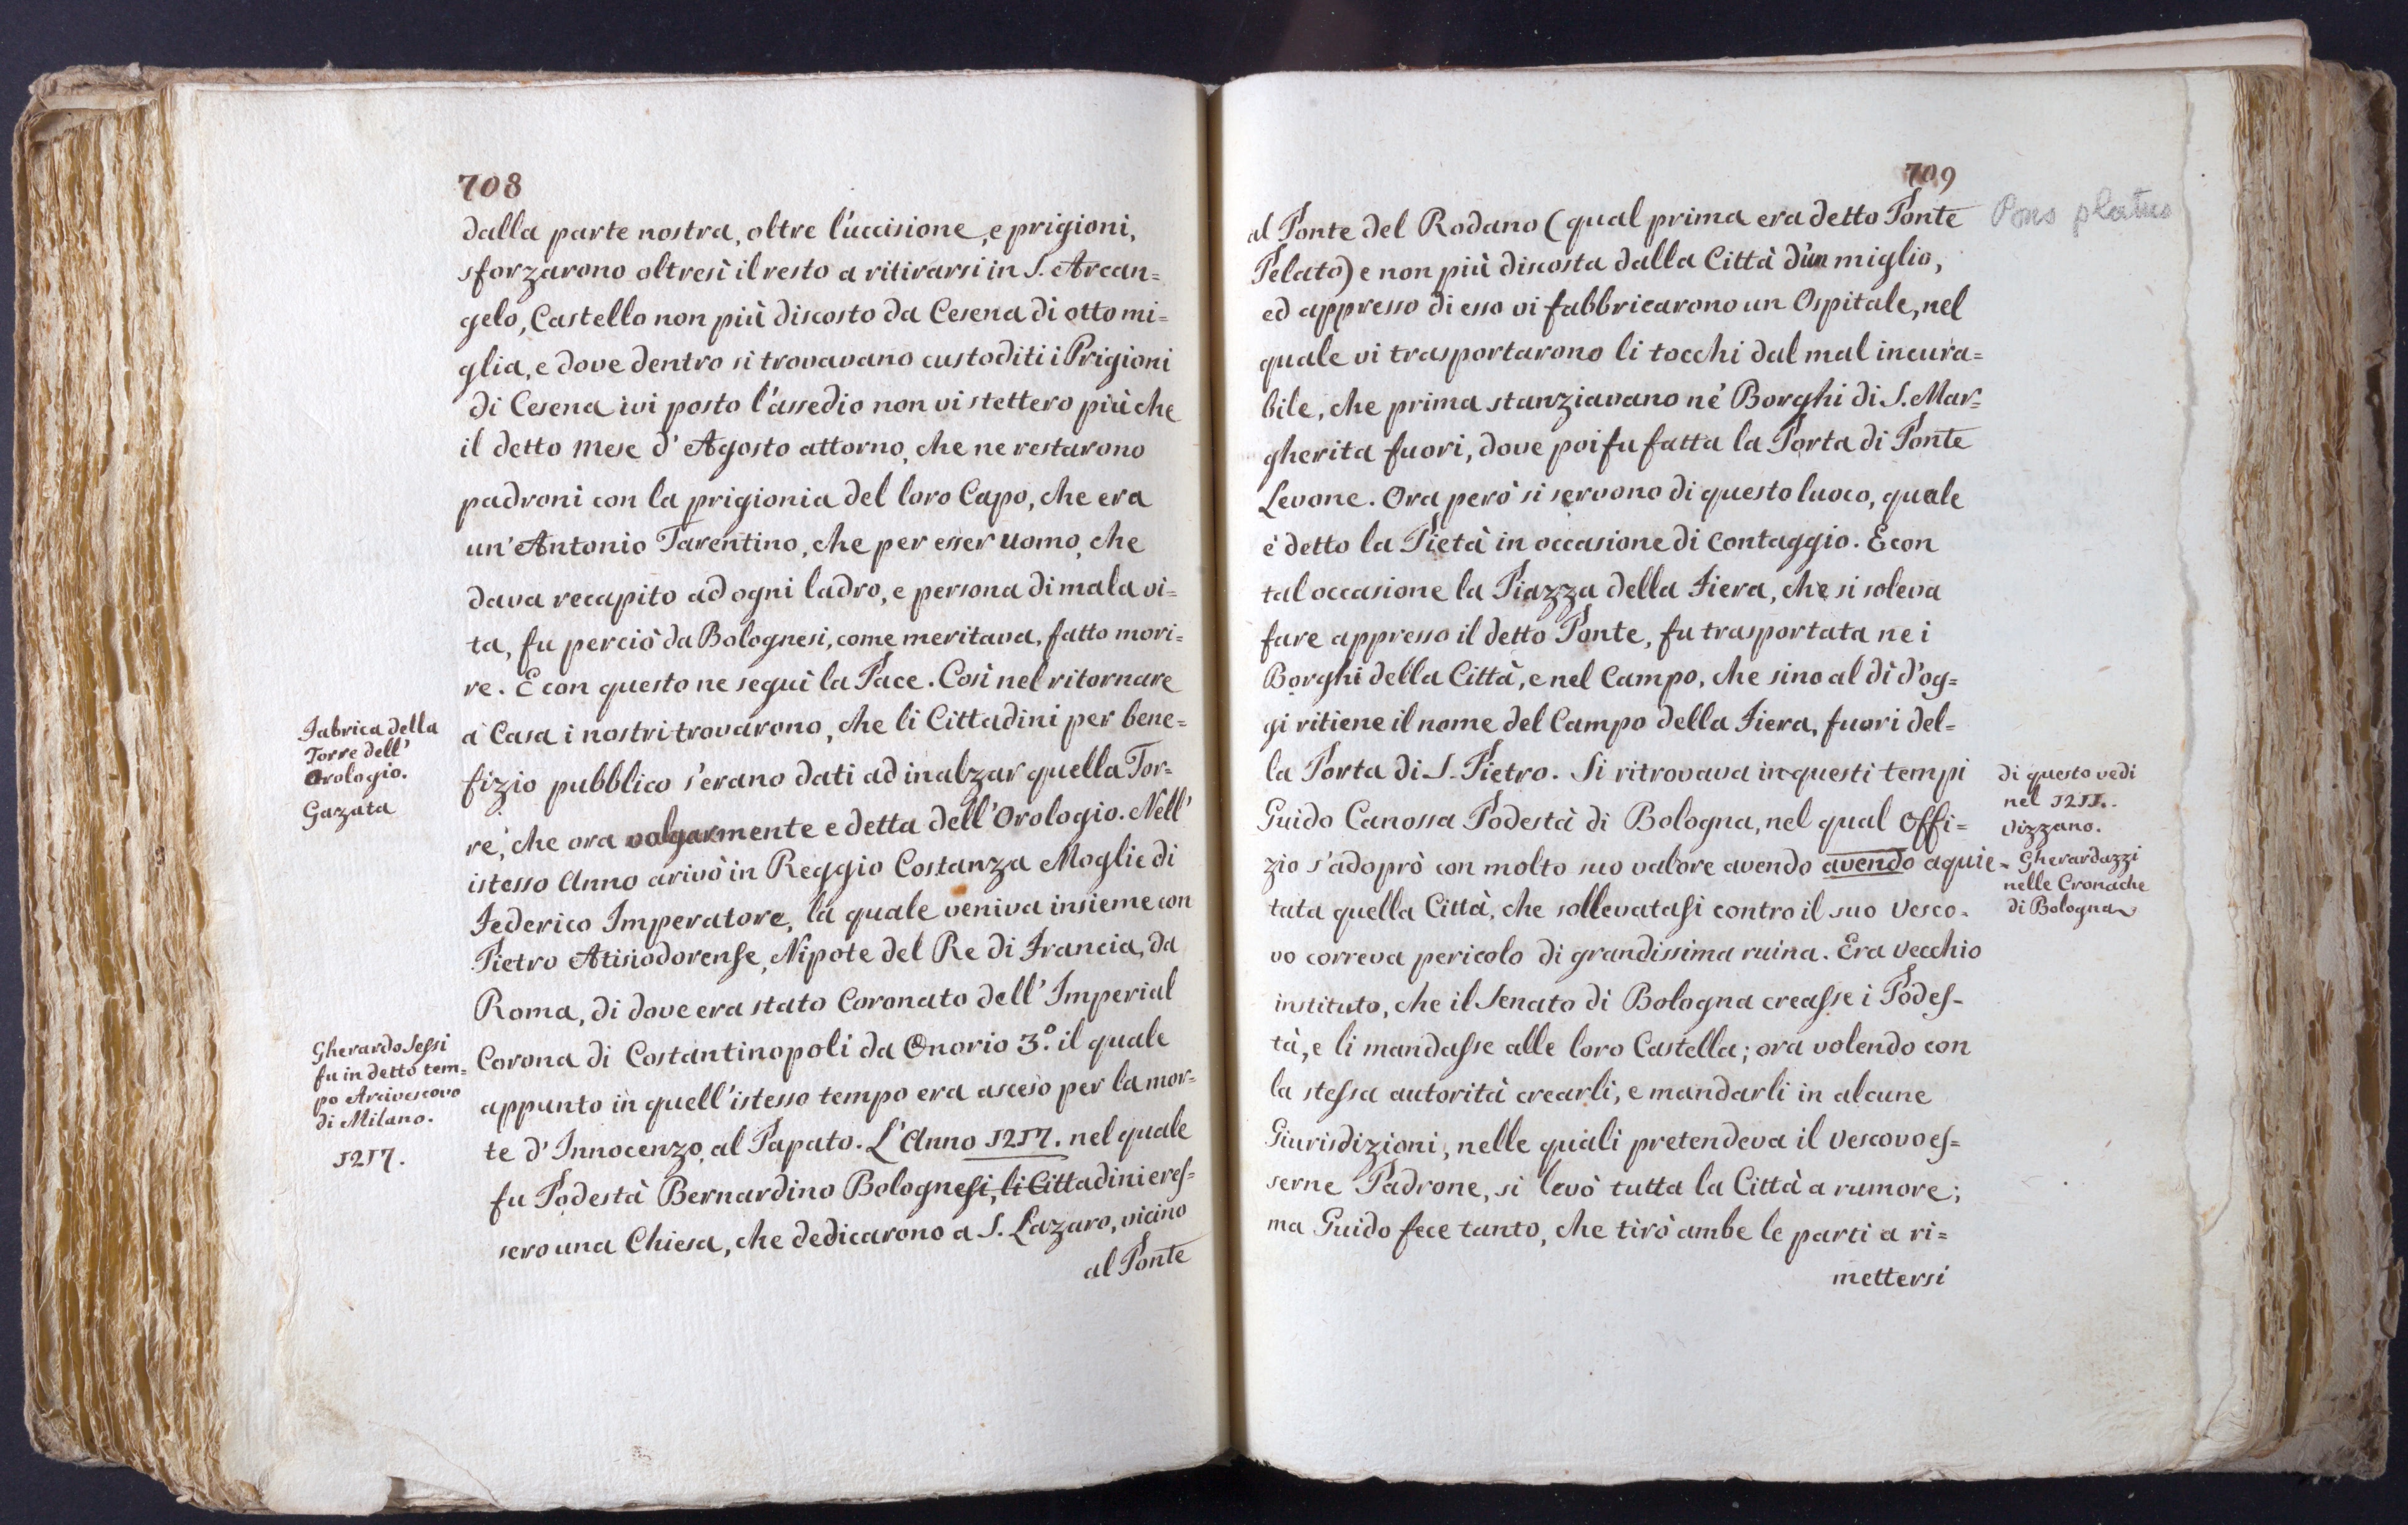 708
dalla parte nostra, oltre l'uccisione, e prigioni,
sforzarono oltresì il resto a ritirarsi in S. Arcan=
gelo, Castello non più discosto da Cesena di otto mi=
glia, e dove dentro si trovavano custoditi i Prigioni
di Cesena ivi posto l'assedio non vi stettero più che
il detto mese d'Agosto attorno, che ne restarono
padroni con la prigionia del loro Capo, che era
un'Antonio Tarentino, che per esser uomo, che
dava recapito ad ogni ladro, e persona di mala vi=
ta, fu perciò da Bolognesi, come meritava, fatto mori=
re. E con questo ne seguì la Pace. Così nel ritornare
a Casa i nostri trovarono, che li Cittadini per bene=
fizio pubblico s'erano dati ad inalzar quella Tor=
re, che ora volgarmente e detta dell'Orologio. Nell'
istesso Anno arivò in Reggio Costanza Moglie di
Federico Imperatore, la quale veniva insieme con
Pietro Atisiodorense, Nipote del Re di Francia, da
Roma, di dove era stato Coronato dell'Imperial
Corona di Costantinopoli da Onorio 3.º il quale
appunto in quell'istesso tempo era asceso per la mor=
te d'Innocenzo al Papato. L'Anno 1217. nel quale
fu Podestà Bernardino Bolognesi, li Cittadini eres=
sero una Chiesa, che dedicarono a S. Lazaro, vicino
al Ponte
Fabrica della
Torre dell'
Orologio.
Gazata
Gherardo Sessi
fu in detto tem=
po Arcivescovo
di Milano.
1217.
709
al Ponte del Rodano (qual prima era detto Ponte
Pelato) e non più discosta dalla Città d'un miglio,
ed appresso di esso vi fabbricarono un Ospitale, nel
quale vi trasportarono li tocchi dal mal incura=
bile, che prima stanziavano nè Borghi di S. Mar=
gherita fuori, dove poi fu fatta la Porta di Ponte
Levone. Ora però si servono di questo luoco, quale
è detto la Pietà in occasione di Contaggio. E con
tal occasione la Piazza della Fiera, che si soleva
fare appresso il detto Ponte, fu trasportata ne i
Borghi della Città, e nel Campo, che sino al dì d'og=
gi ritiene il nome del Campo della Fiera, fuori del=
la Porta di S. Pietro. Si ritrovava in questi tempi
Guido Canossa Podestà di Bologna, nel qual Offi=
zio s'adoprò con molto suo valore avendo avendo aquie=
tata quella Città, che sollevatasi contro il suo Vesco=
vo correva pericolo di grandissima ruina. Era Vecchio
instituto, che il Senato di Bologna creasse i Podes=
tà, e li mandasse alle loro Castella; ora volendo con
la stessa autorità crearli, e mandarli in alcune
Giurisdizioni, nelle quali pretendeva il Vescovo es=
serne Padrone, si levò tutta la Città a rumore;
ma Guido fece tanto, che tirò ambe le parti a ri=
mettersi
Pons platus
di questo vedi
nel 1211.
Vizzano.
Gherardazzi
nelle Cronache
di Bologna